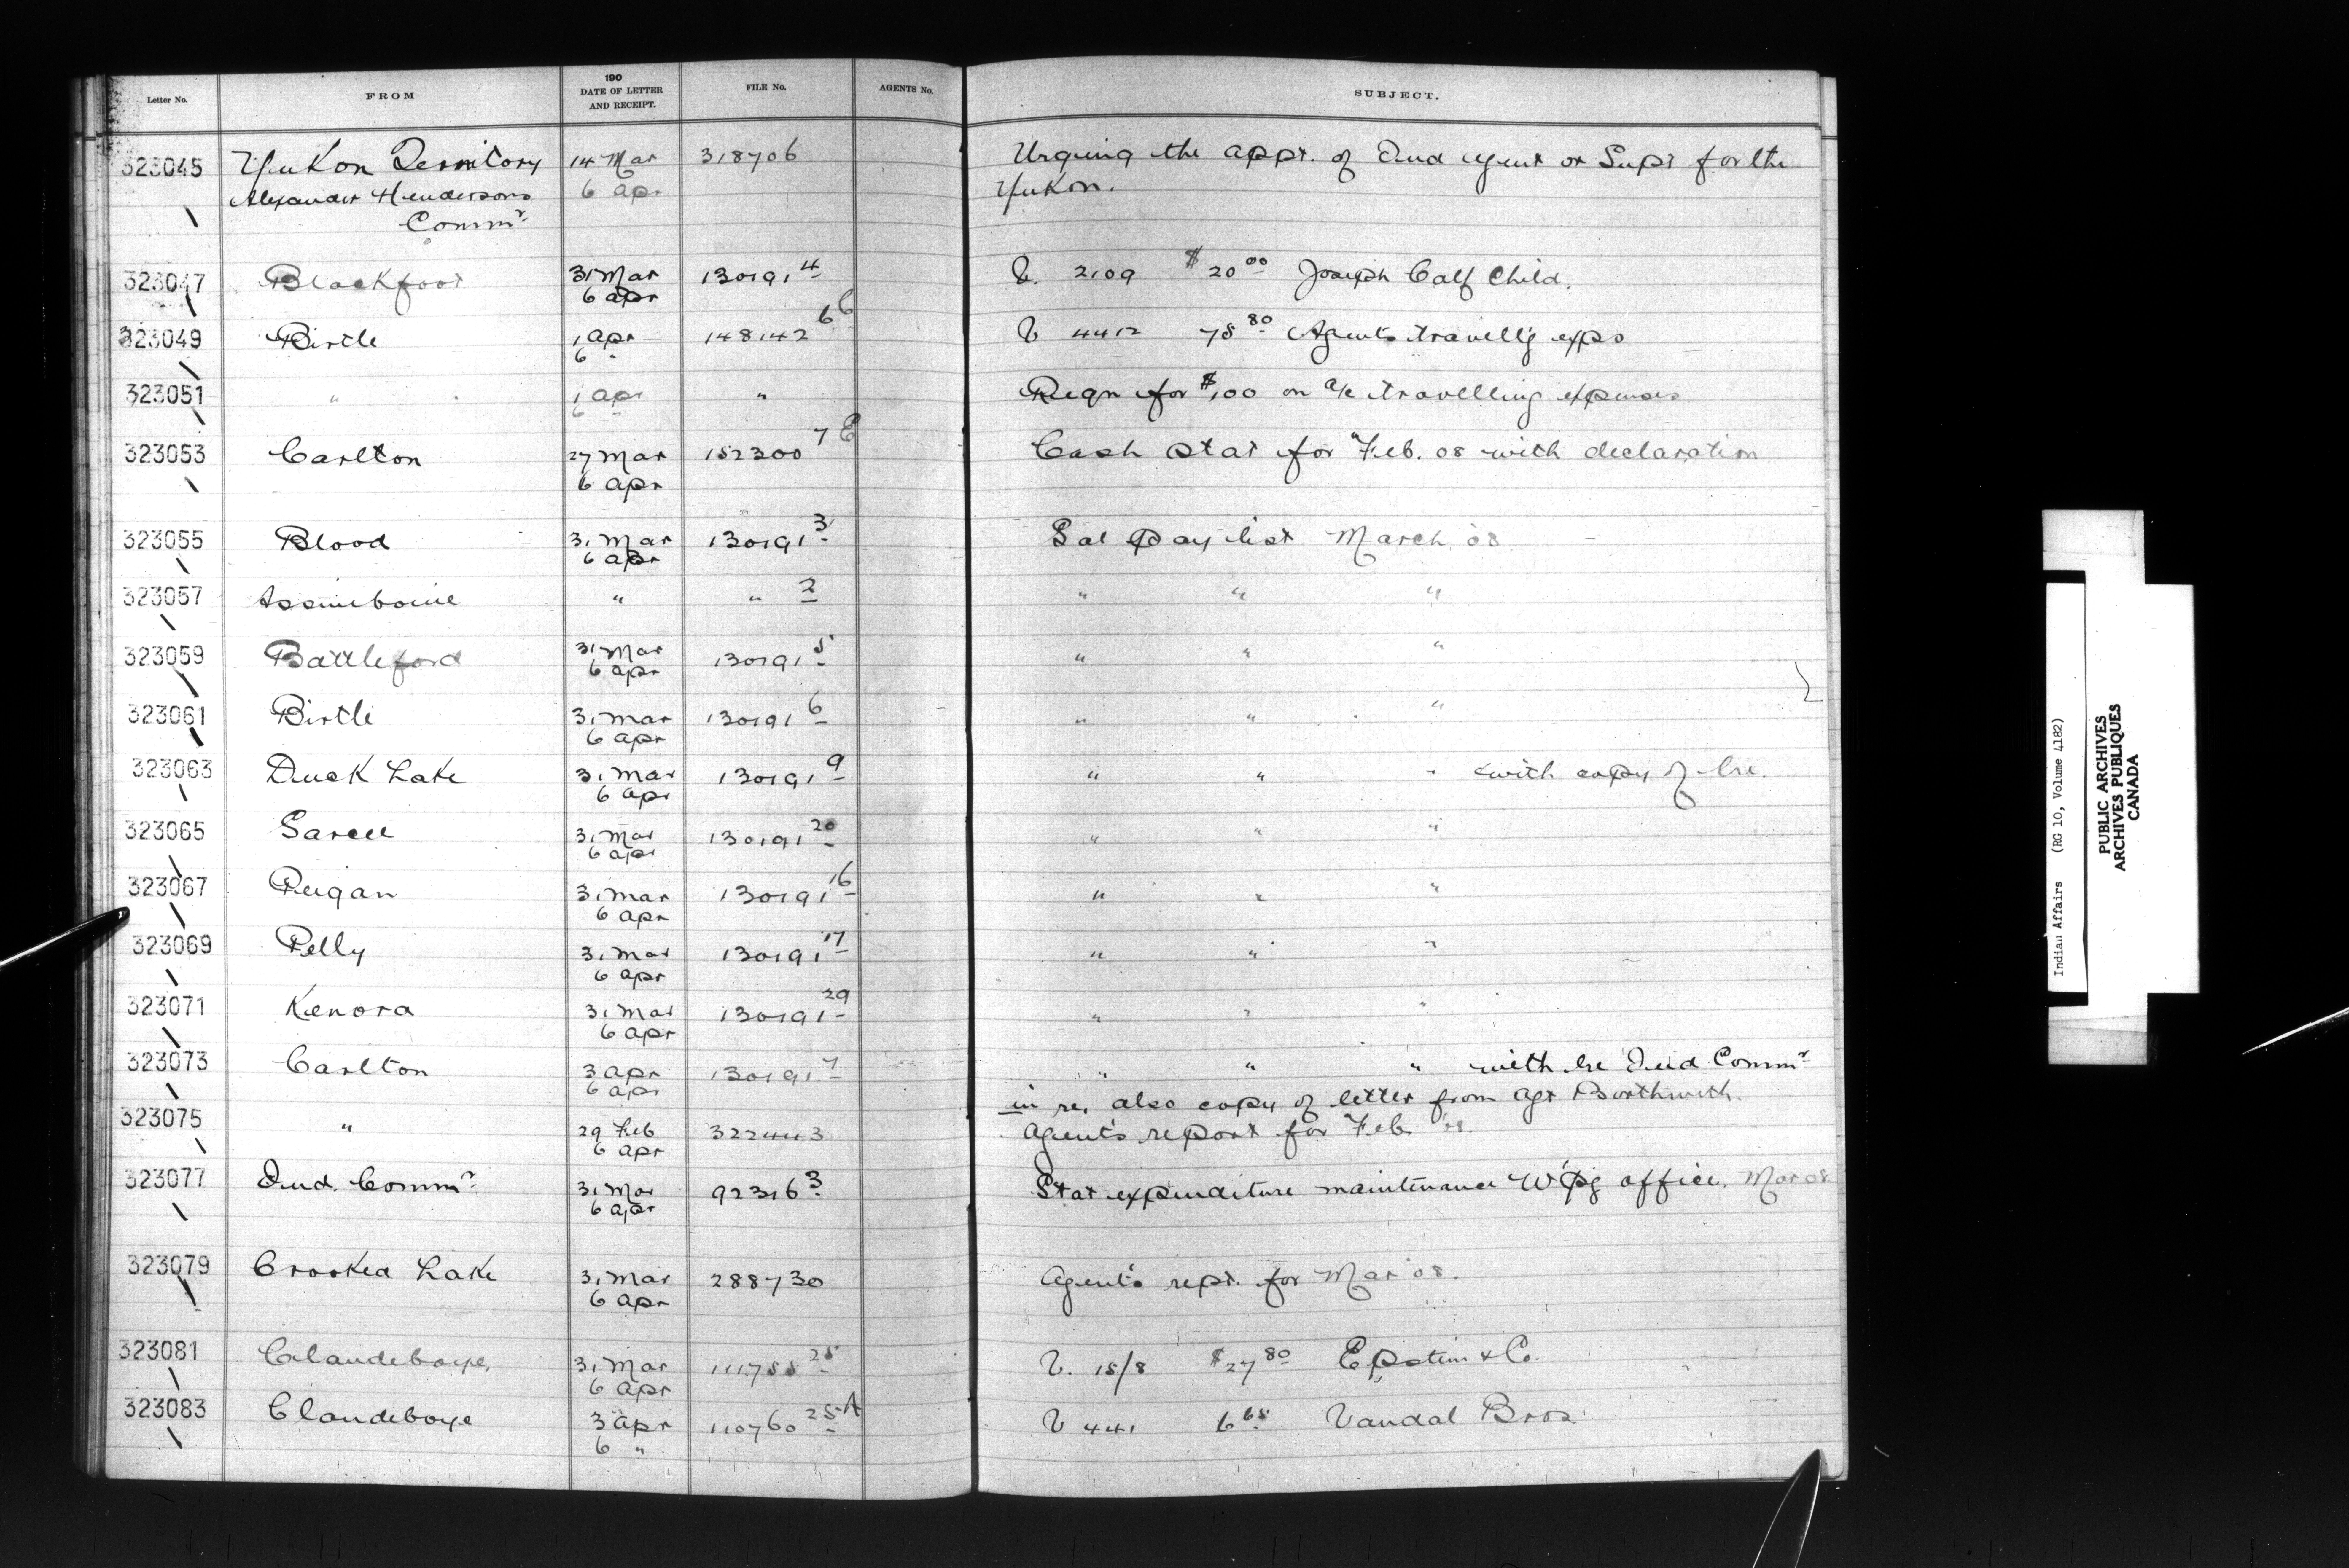 Letter No. FROM 190 DATE OF LETTER AND RECEIPT. FILE No. AGENTS No. SUBJECT.
323045 Yukon Territory 14 Mar 318706 Urging the appt. of Ind Agent or Supt for the
Alexander Hendersons 6 apr Yukon.
Commr
323047 Blackfoot 31 Mar 130191 4 V. 2109 $20 00 Joseph Calf Child.
6 apr
323049 Birtle 1 apr 148142 6 C V 4412 78 80 Agents travell'g exps
6 "
323051 " 1 apr " Reqn for $100 on a/c travelling expenses
6 "
323053 Carlton 27 Mar 152300 7 E Cash Stat for Feb. 08 with declaration
6 apr
323055 Blood 31 Mar 130191 3 Sal Pay list March 08
6 apr
323057 Assiniboine " " 2 " " "
323059 Battleford 31 Mar 130191 5 " " "
6 apr
323061 Birtle 31 Mar 130191 6 " " "
6 apr
323063 Duck Lake 31 Mar 130191 9 " " " with copy of lre.
6 apr
323065 Sarcee 31 Mar 130191 20 " " "
6 apr
323067 Peigan 31 Mar 130191 16 " " "
6 apr
323069 Pelly 31 Mar 130191 17 " " "
6 apr
323071 Kenora 31 Mar 130191 29 " " "
6 apr
323073 Carlton 3 apr 130191 7 " " " with lre Ind Commr
6 apr in re, also copy of letter from Agt Borthwith.
323075 " 29 Feb 322443 Agent's report for Feb 08.
6 apr
323077 Ind. Commr 31 Mar 92316 3 Stat expenditure maintenance W'pg office. Mar 08
6 apr
323079 Crooked Lake 31 Mar 288730 Agent's rept. for Mar 08.
6 apr
323081 Clandeboye, 31 Mar 111788 28 V. 15/8 $27 80 Epstein & Co.
6 apr
323083 Clandeboye 3 apr 110760 28 A V 441 6 68 Vandal Bros.
6 "
Indian Affairs (RG 10, Volume 4182)
PUBLIC ARCHIVES
ARCHIVES PUBLIQUES
CANADA